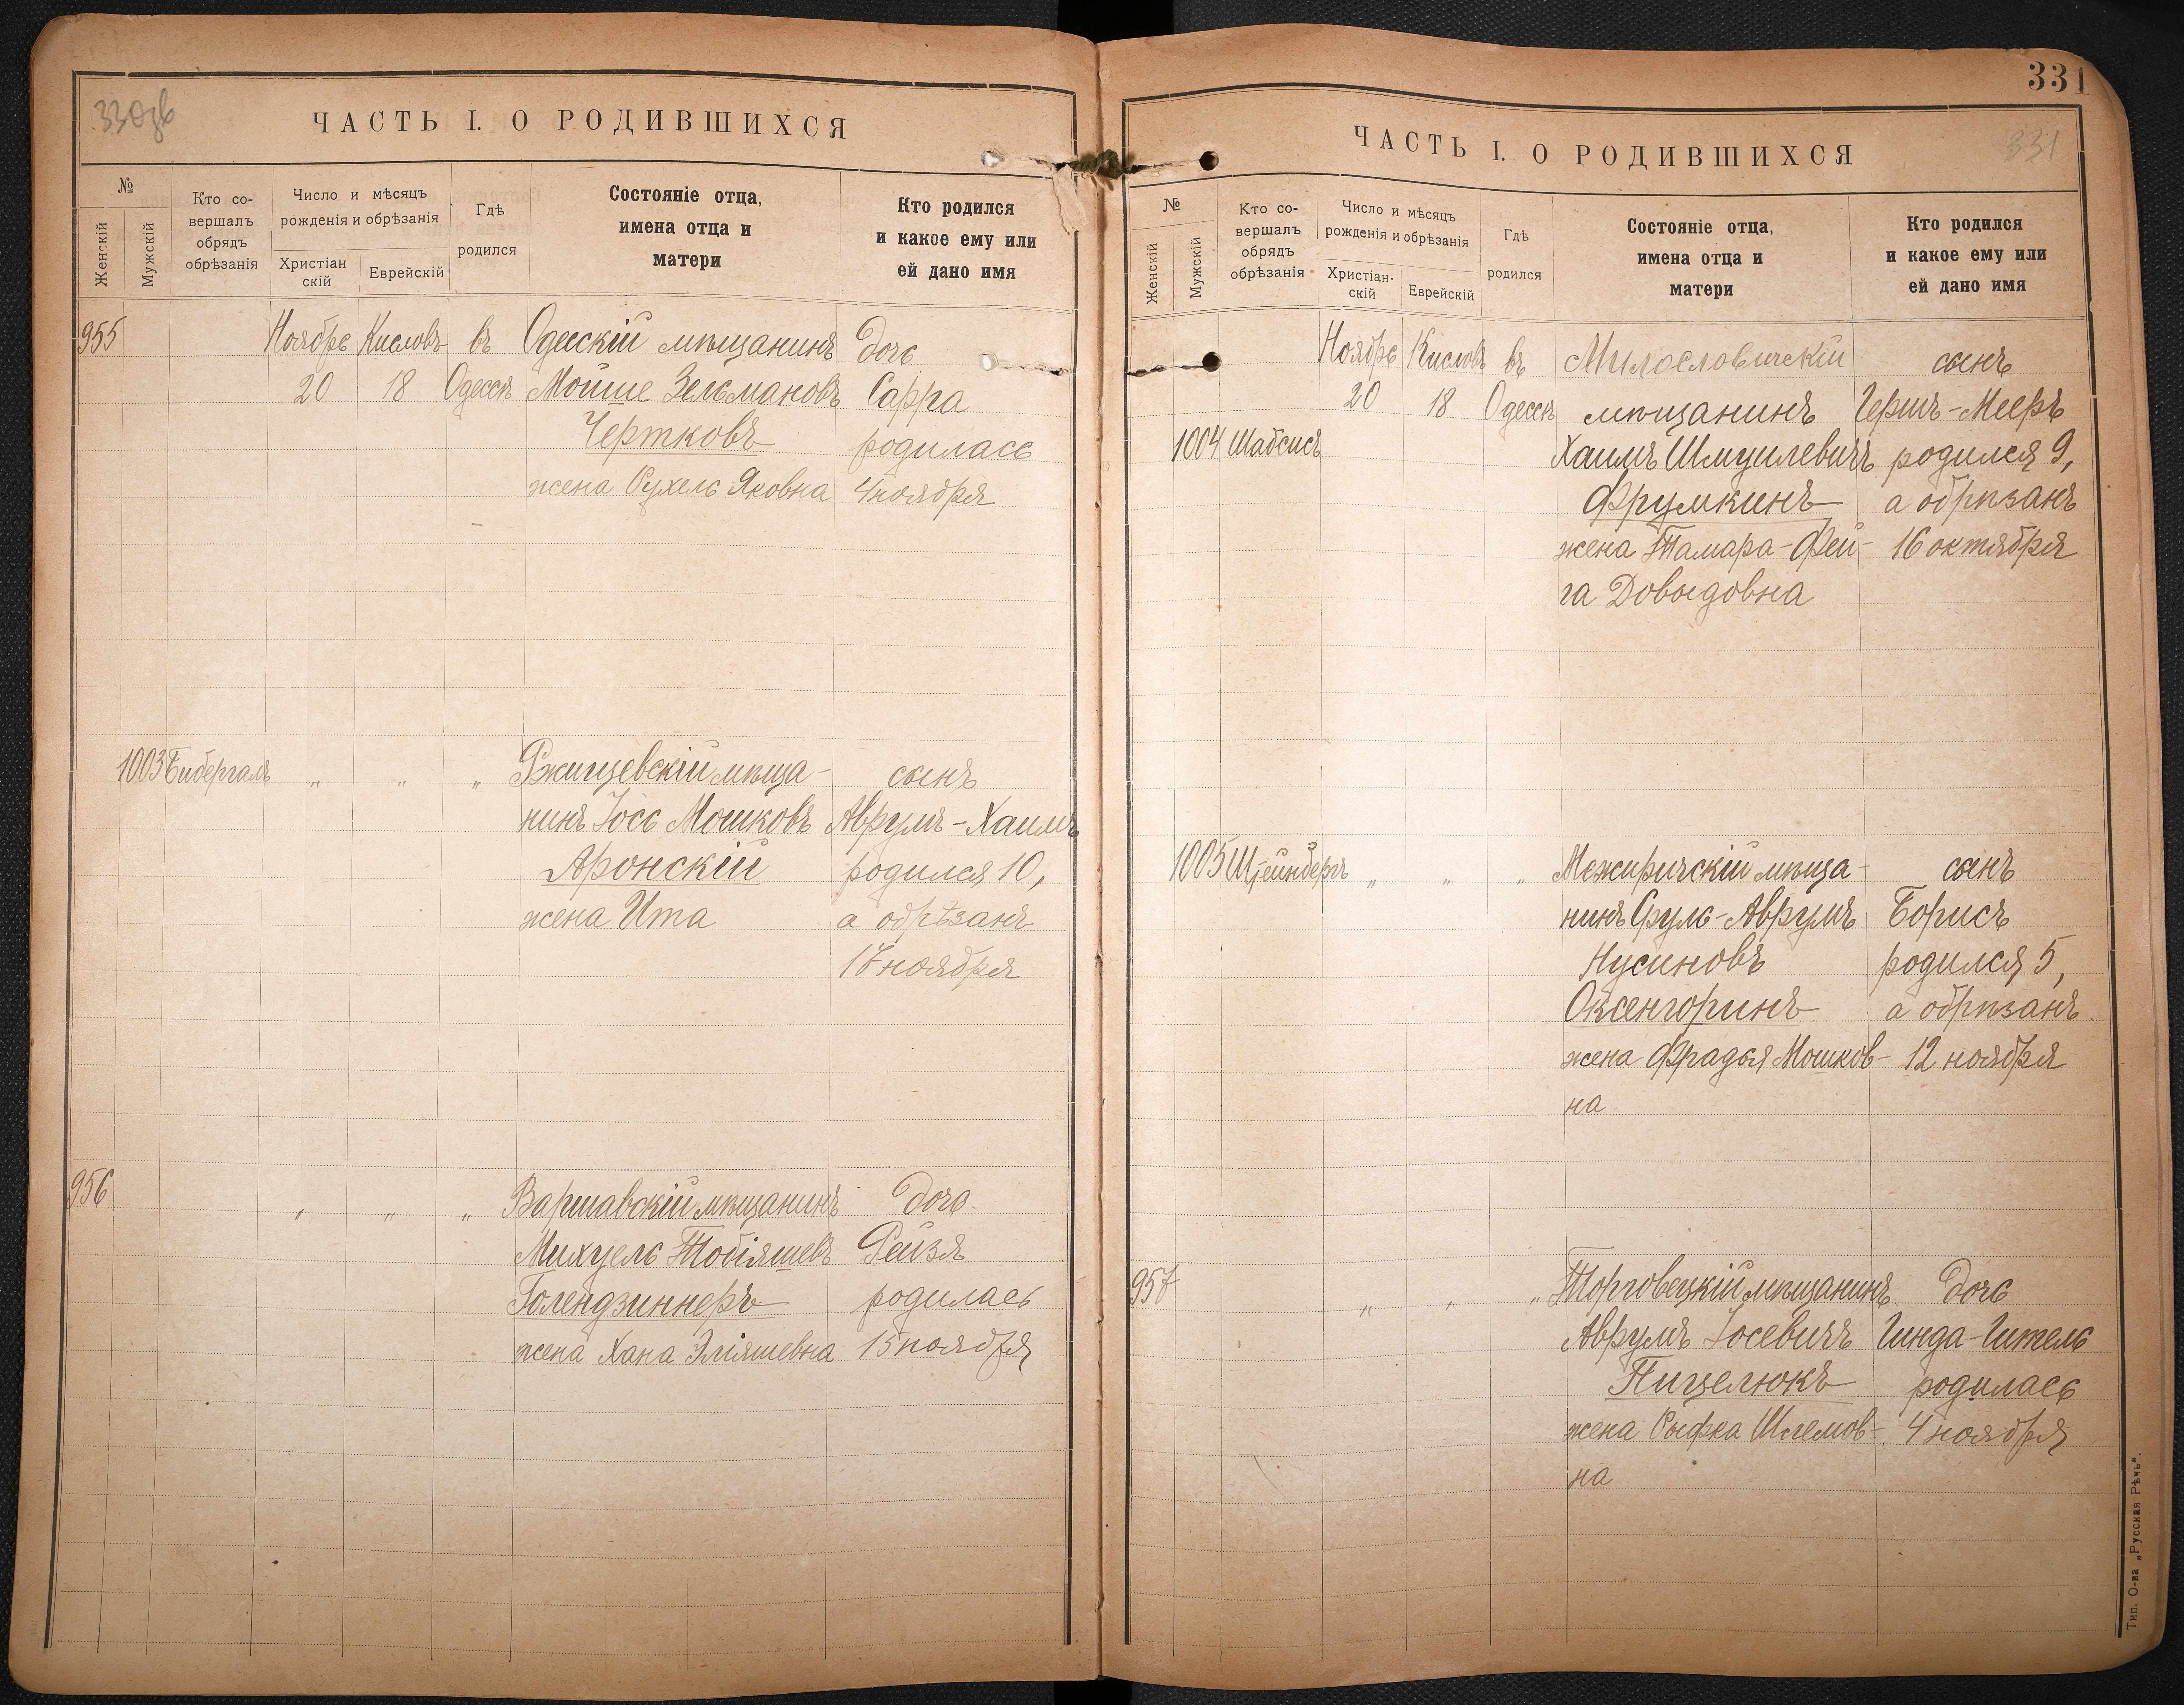 330об
ЧАСТЬ I. О РОДИВШИХСЯ
№
Женскій
Мужскій
Кто со-
вершалъ
обрядъ
обрѣзанія
Число и мѣсяцъ
рожденія и обрѣзанія
Христіан
скій
Еврейскій
Гдѣ
родился
Состояніе отца,
имена отца и
матери
Кто родился
и какое ему или
ей дано имя
955 Ноябрь Кисловъ въ Одесскій мѣщанинъ дочь
20 18 Одессѣ Мойше Зельмановъ Сарра
Чертковъ родилась
жена Рухель Яковна 4 ноября
1003 Бибергалъ „ „ „ Ржищевскій мѣща- сынъ
нинъ Іось Мошковъ Аврумъ-Хаимъ
Аронскій родился 10,
жена Ита а обрѣзанъ
17 ноября
956 „ „ „ Варшавскій мѣщанинъ дочь
Михуель Тобіяшевъ Рейзя
Голендзиннеръ родилась
жена Хана Эліяшевна 15 ноября
331
ЧАСТЬ I. О РОДИВШИХСЯ
331
№
Женскій
Мужскій
Кто со-
вершалъ
обрядъ
обрѣзанія
Число и мѣсяцъ
рожденія и обрѣзанія
Христіан-
скій
Еврейскій
Гдѣ
родился
Состояніе отца,
имена отца и
матери
Кто родился
и какое ему или
ей дано имя
Ноябрь Кисловъ въ Милославичскій сынъ
20 18 Одессѣ мѣщанинъ Гершъ-Мееръ
1004 Шабсисъ Хаимъ Шмуилевичъ родился 9,
Фрумкинъ а обрѣзанъ
жена Тамара-Фей- 16 октября
га Довыдовна
1005 Штейнбергъ „ „ „ Межиричскій мѣща- сынъ
нинъ Сруль-Аврумъ Борисъ
Нусиновъ родился 5,
Оксенгоринъ а обрѣзанъ
жена Фрадья Мошков- 12 ноября
на
957 „ „ „ Торговецкій мѣщанинъ дочь
Аврумъ Іосевичъ Гинда-Гитель
Пицелюкъ родилась
жена Рыфка Шлемов- 4 ноября
на
Тип. О-ва „Русская Рѣчь“.